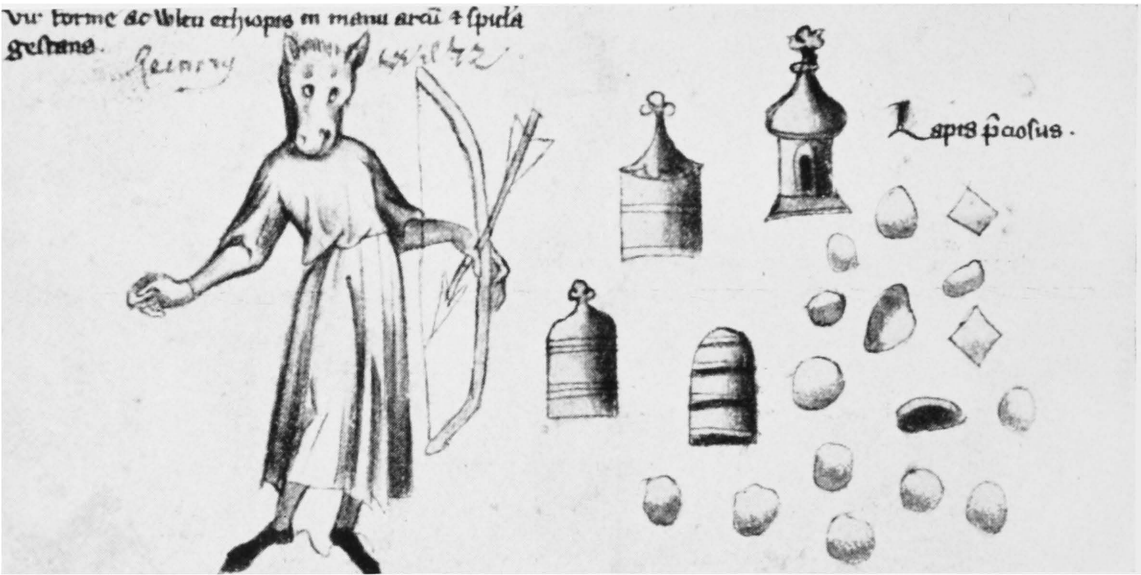 Vir forme ac vultu ethiopis in manu arcū ⁊ spicula
gestans
Lapis p̄ciosus.